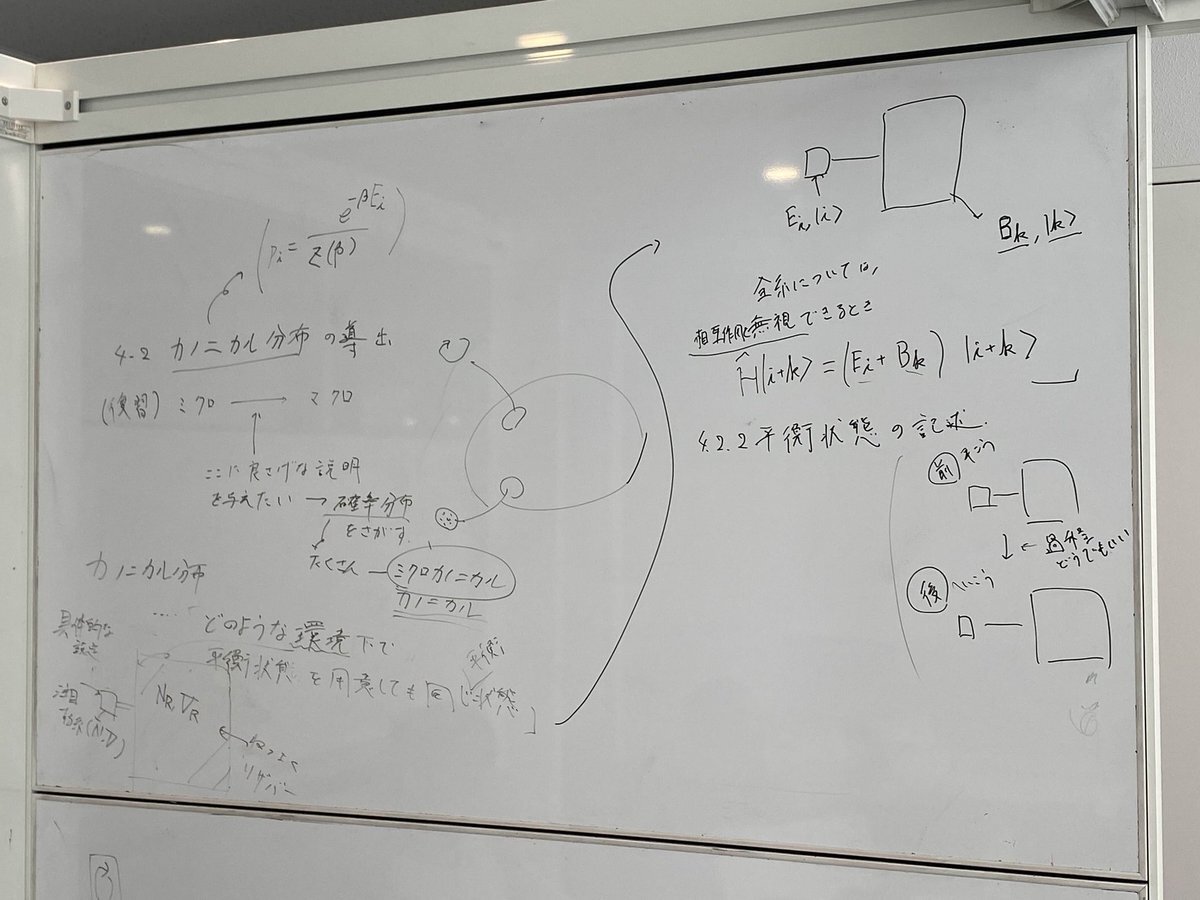 (p_i = e^{-βE_i} / Z(β))
4.2 カノニカル分布の導出
(復習) ミクロ → マクロ
ここに良さげな説明
を与えたい → 確率分布
をさがす.
たくさん ― ミクロカノニカル
カノニカル
カノニカル分布
.... どのような環境下で
平衡状態を用意しても同じ状態
平衡
具体的な
設定
注目
N_R, V_R
リザバー
E_i, |i>
B_k, |k>
全系については,
相互作用無視できるとき
Ĥ|i+k> = (E_i + B_k) |i+k>
4.2.2 平衡状態の記述.
前
← 過程
どうでもいい
後 へいこう